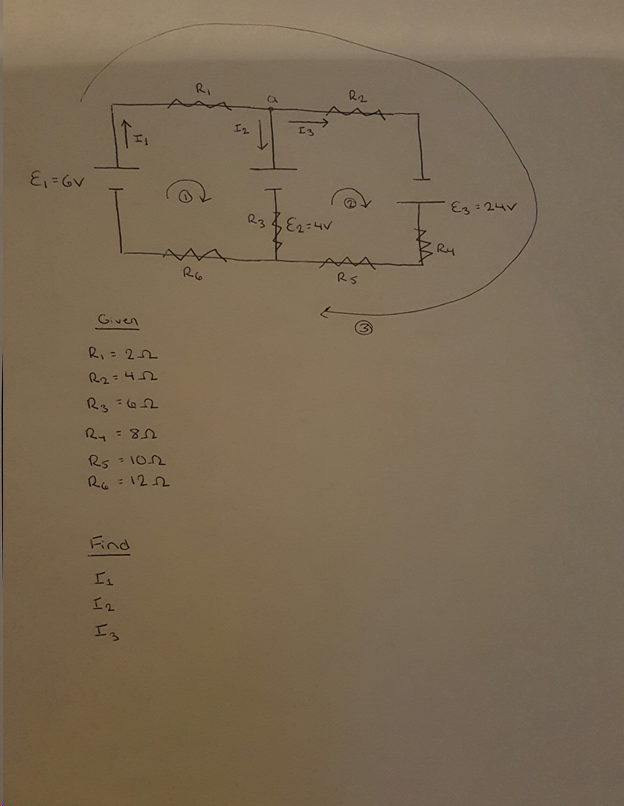 R₁
a
R₂
I₁
I₂
I₃
Ɛ₁ = 6V
①
②
R₃
Ɛ₂ = 4V
Ɛ₃ = 24V
R₄
R₆
R₅
③
Given
R₁ = 2Ω
R₂ = 4Ω
R₃ = 6Ω
R₄ = 8Ω
R₅ = 10Ω
R₆ = 12Ω
Find
I₁
I₂
I₃